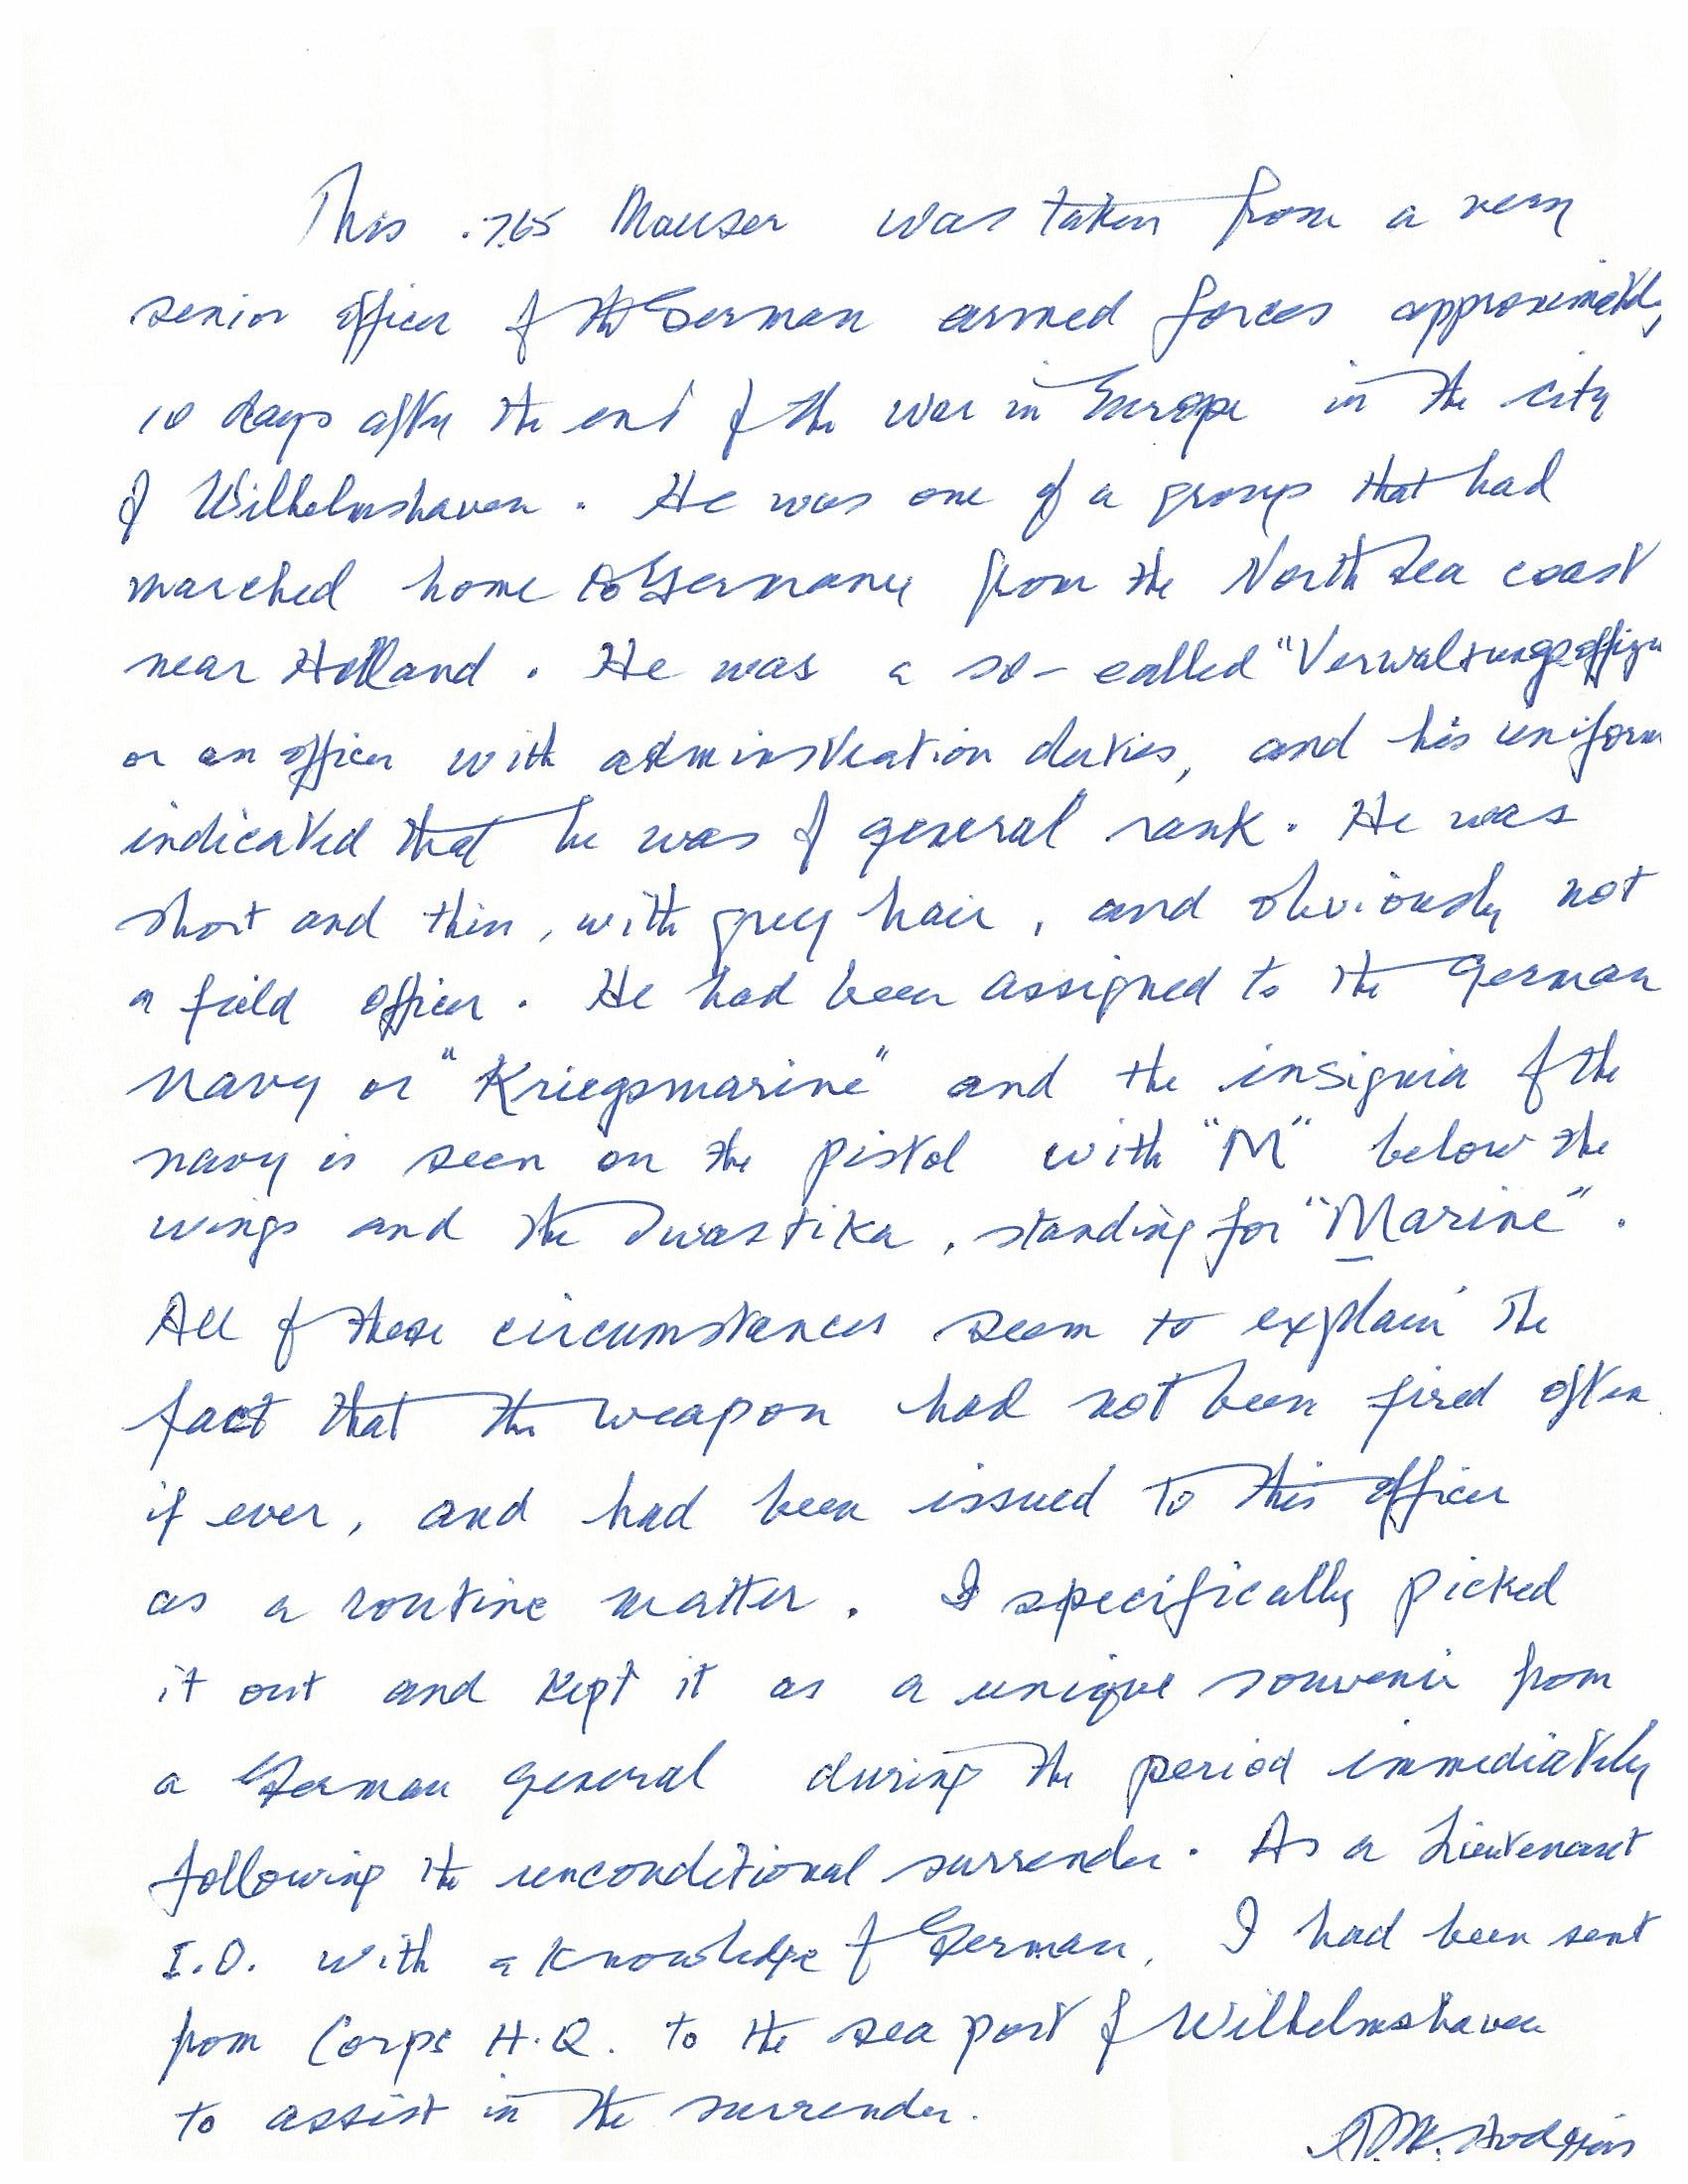 This .765 Mauser was taken from a very
senior officer of the German armed forces approximately
10 days after the end of the war in Europe in the city
of Wilhelmshaven. He was one of a group that had
marched home to Germany from the North Sea coast
near Holland. He was a so-called "Verwaltungsoffizi
or an officer with administration duties, and his uniform
indicated that he was of general rank. He was
short and thin, with grey hair, and obviously not
a field officer. He had been assigned to the German
navy or "Kriegsmarine" and the insignia of the
navy is seen on the pistol with "M" below the
wings and the Swastika, standing for "Marine".
All of these circumstances seem to explain the
fact that the weapon had not been fired often
if ever, and had been issued to this officer
as a routine matter. I specifically picked
it out and kept it as a unique souvenir from
a German general during the period immediately
following the unconditional surrender. As a Lieutenant
I.O. with a knowledge of German, I had been sent
from Corps H.Q. to the sea port of Wilhelmshaven
to assist in the surrender.
Hodgins